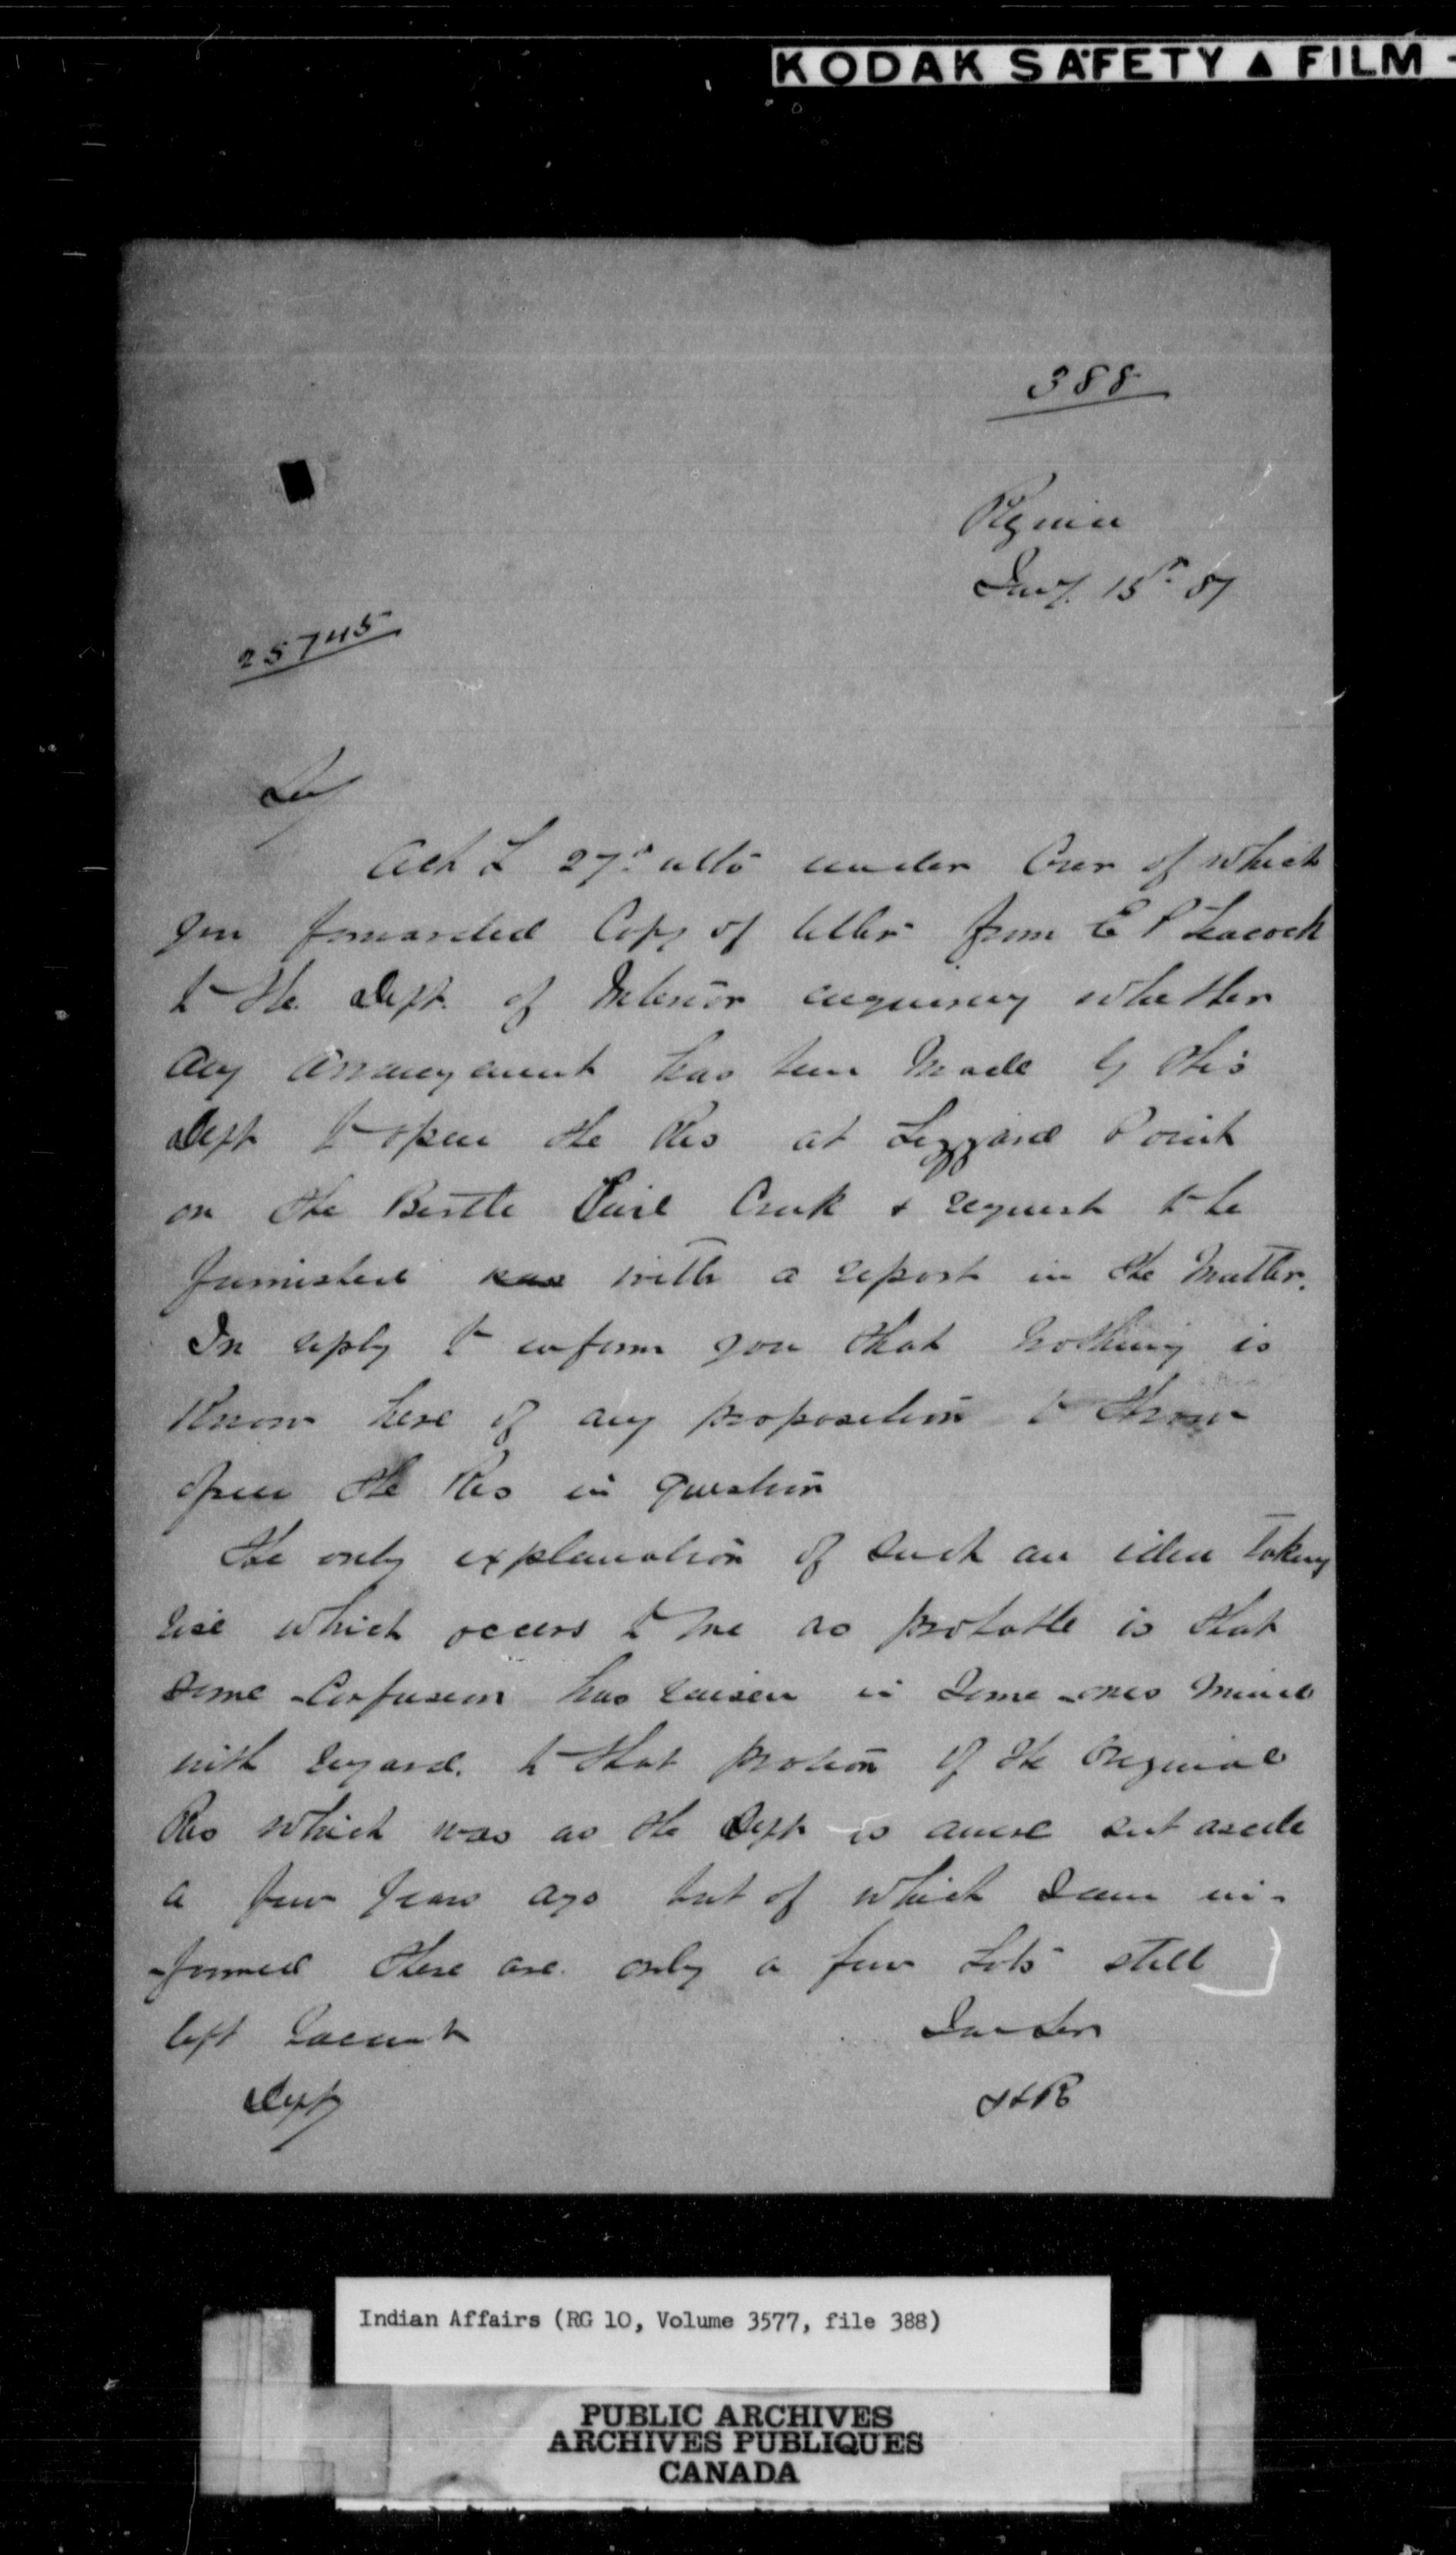 KODAK SAFETY ▲ FILM
388
Regina
Jany. 15th 87
25745
Sir
Ack L 27th ulto under Cover of which
you forwarded Copy of letter from E P Leacock
to the Dept. of Interior enquiring whether
any arrangement has been Made by this
Dept to open the Res at Lizzard Point
on the Birtle Creek & request to be
furnished with a report in the Matter.
In reply to inform you that nothing is
Known here of any proposition to throw
open the Res in question
The only explanation of such an idea taking
rise which occurs to me as probable is that
some Confusion has raisen in some ones Mind
with regard. to that protion of the Original
Res which was as the Dept is aware cut aside
a few years ago but of which I am in-
-formed there are only a few Lots still
left Vacant
Dept
Indian Affairs (RG 10, Volume 3577, file 388)
PUBLIC ARCHIVES
ARCHIVES PUBLIQUES
CANADA